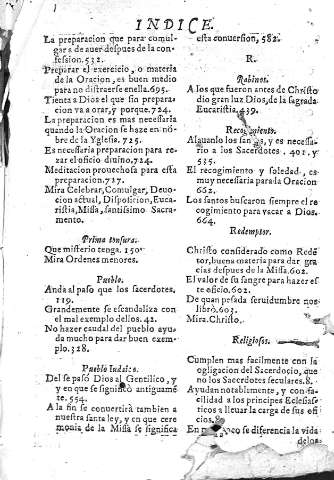 INDICE.
La preparacion que para comul-
gar a de auer despues de la con-
fession. 532.
Preparar el exercicio, o materia
de la Oracion, es buen medio
para no distraerse en ella. 695.
Tienta a Dios el que sin prepara-
cion va a orar, y porque. 724.
La preparacion es mas necessaria
quando la Oracion se haze en nō-
bre de la Yglesia. 725.
Es necessaria preparacion para re-
zar el oficio diuino. 724.
Meditacion prouechosa para esta
preparacion. 727.
Mira Celebrar, Comulgar, Deuo-
cion actual, Disposicion, Euca-
ristia, Missa, santissimo Sacra-
mento.
Prima tonsura.
Que misterio tenga. 150.
Mira Ordenes menores.
Pueblo.
Anda al paso que los sacerdotes.
119.
Grandemente se escandaliza con
el mal exemplo dellos. 42.
No hazer caudal del pueblo ayu-
da mucho para dar buen exem-
plo. 328.
Pueblo Iudaico.
Del se pasó Dios al Gentilico, y
y en que se significó antiguamē-
te. 554.
A la fin se conuertirà tambien a
nuestra santa ley, y en que cere
monia de la Missa se significa
esta conuersion, 582.
R.
Rabinos.
A los que fueron antes de Christo
dio gran luz Dios, de la sagrada
Eucaristia. 439.
Recogimiento.
Alguanlo los y es necessa-
rio a los Sacerdotes. 401. y
535.
El recogimiento y soledad, es
muy necessaria para la Oracion
662.
Los santos buscaron siempre el re
cogimiento para vacar a Dios.
664.
Redemptor.
Christo considerado como Redē
tor, buena materia para dar gra
cias despues de la Missa. 602.
El valor de su sangre para hazer es
te oficio. 602.
De quan pesada seruidumbre nos
librò. 603.
Mira. Christo.
Religiosos.
Cumplen mas facilmente con la
obligacion del Sacerdocio, que
no los Sacerdotes seculares. 8.
Ayudan notablemente, y con fa-
cilidad a los principes Eclesias-
ticos a lleuar la carga de sus ofi
cios. 80
En se diferencia la vida
de los